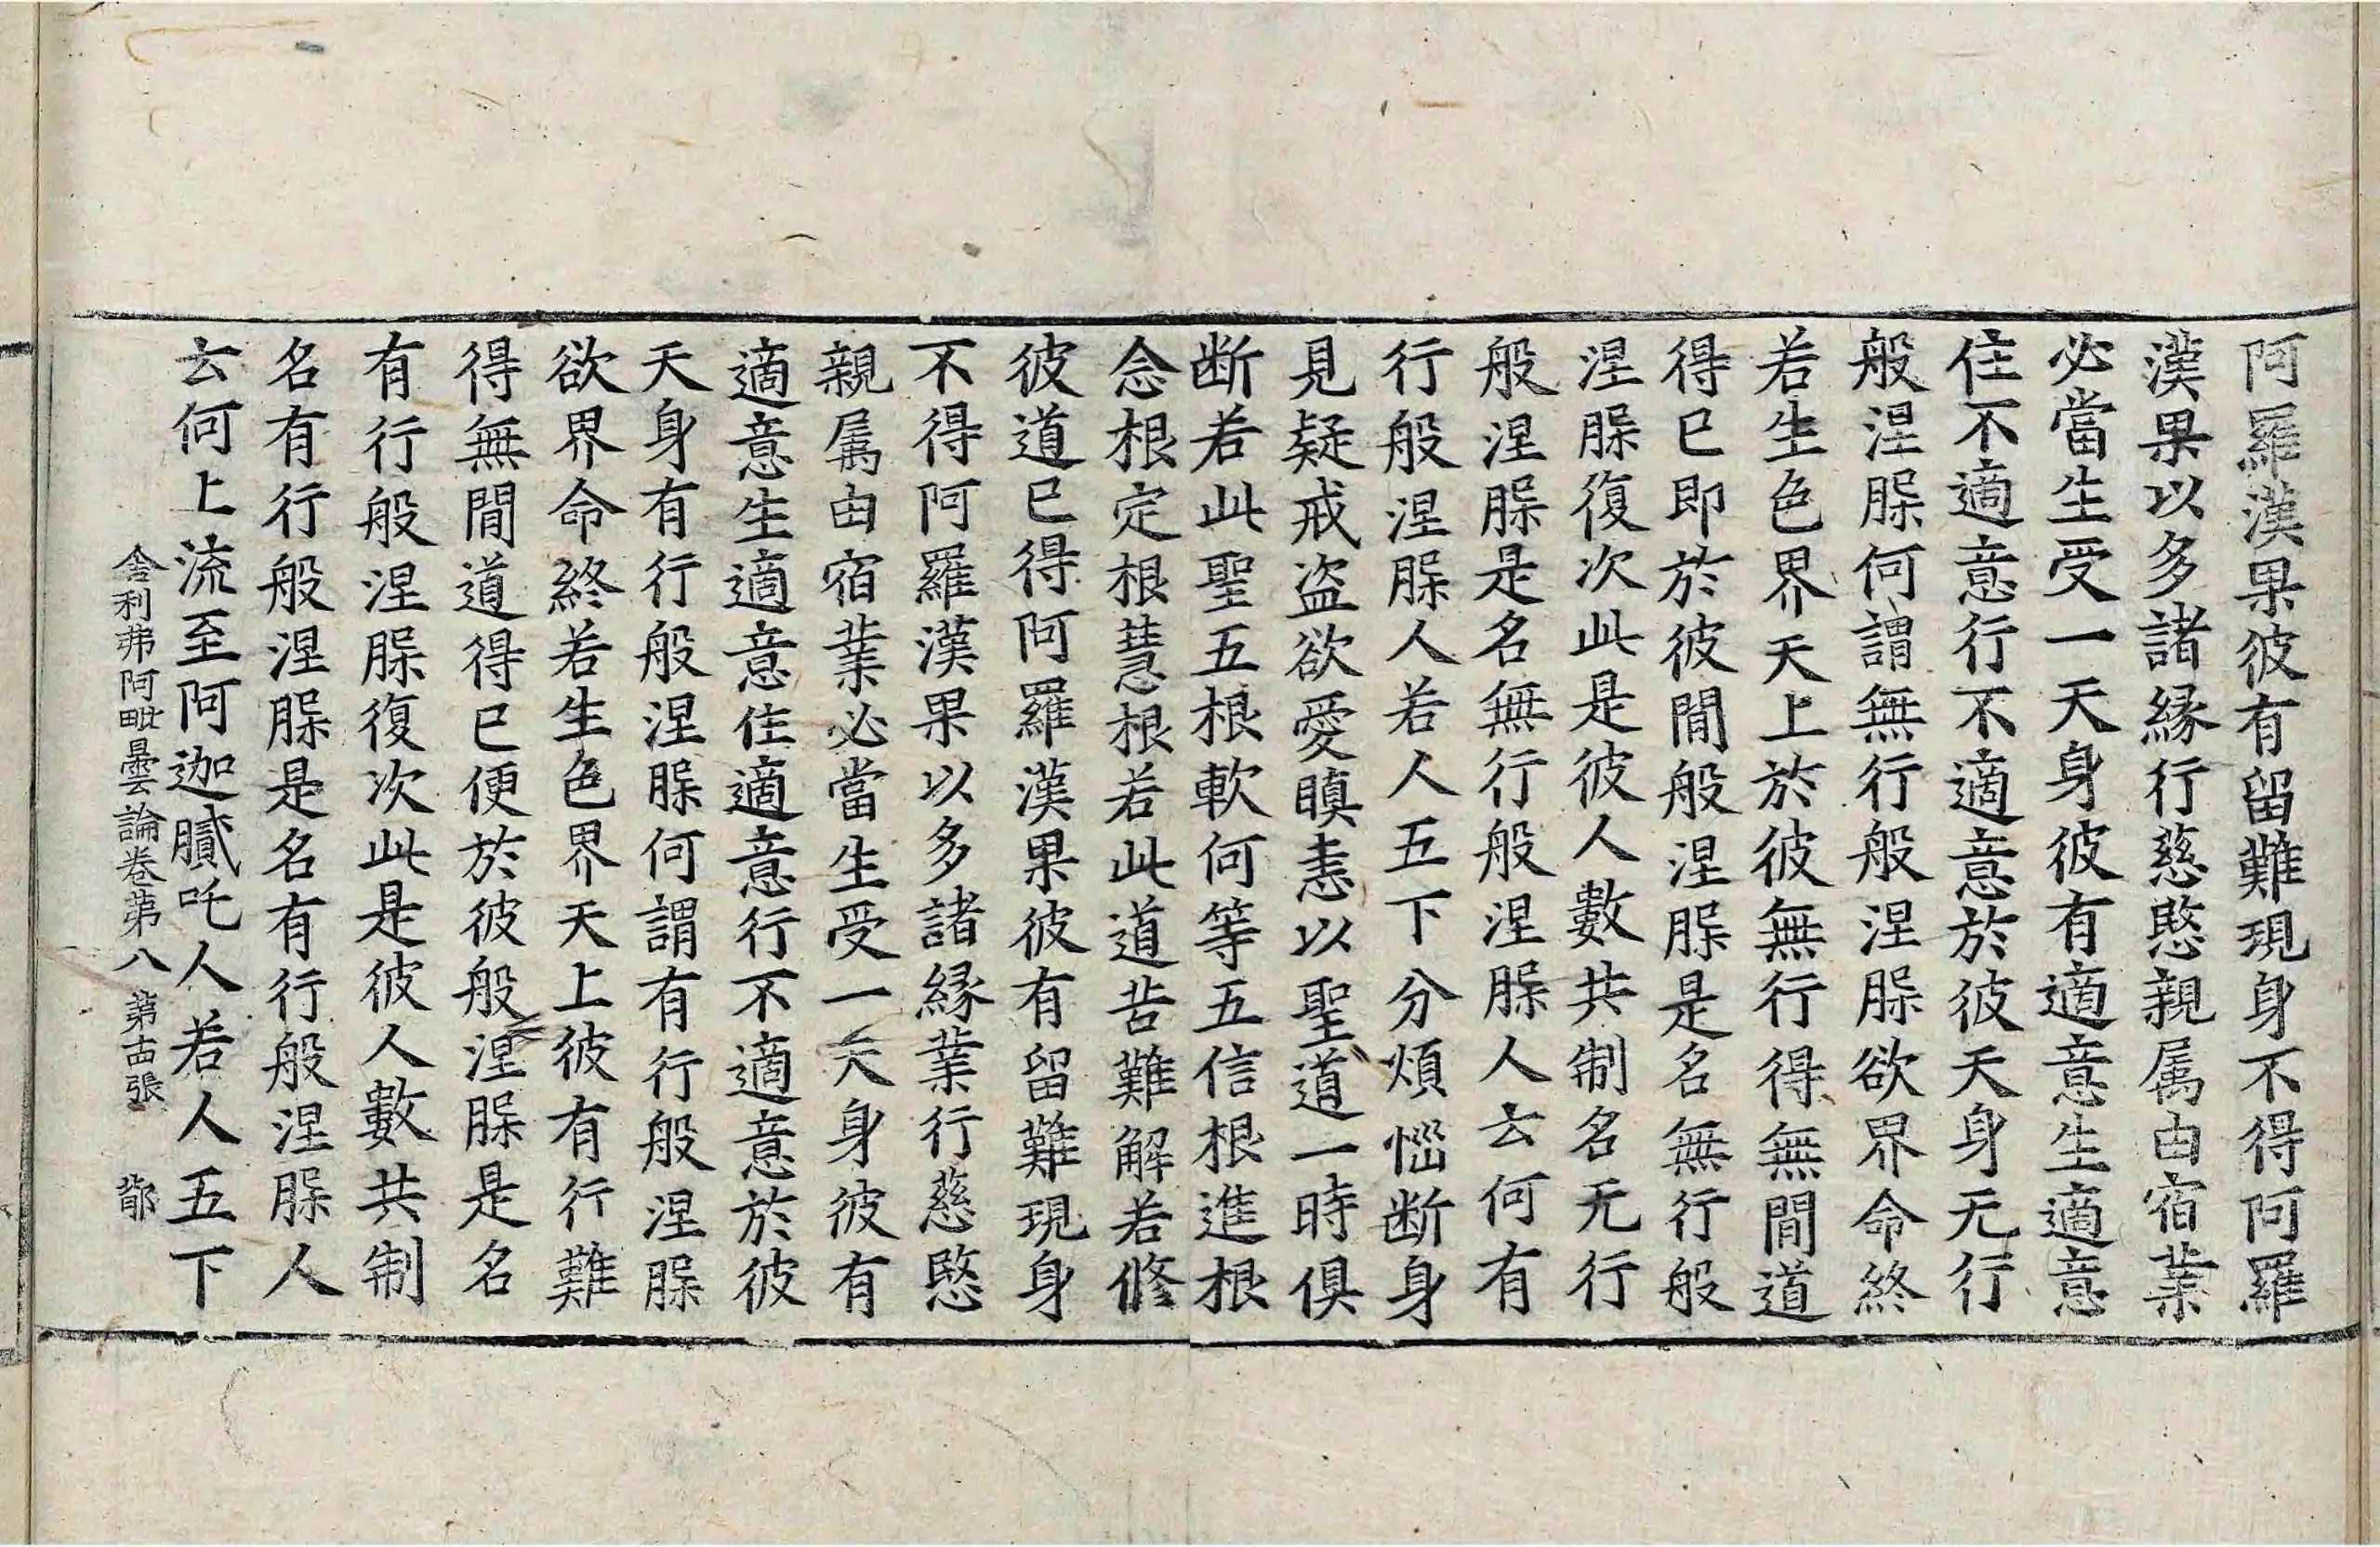 阿羅漢果彼有留難現身不得阿羅
漢果以多諸緣行慈愍親属由宿業
必當生受一天身彼有適意生適意
住不適意行不適意於彼天身无行
般涅槃何謂無行般涅槃欲界命終
若生色界天上於彼無行得無間道
得已即於彼間般涅槃是名無行般
涅槃復次此是彼人數共制名无行
般涅槃是名無行般涅槃人云何有
行般涅槃人若人五下分煩惱断身
見疑戒盗欲愛瞋恚以聖道一時俱
断若此聖五根軟何等五信根進根
念根定根慧根若此道苦難解若修
彼道已得阿羅漢果彼有留難現身
不得阿羅漢果以多諸緣業行慈愍
親属由宿業必當生受一天身彼有
適意生適意住適意行不適意於彼
天身有行般涅槃何謂有行般涅槃
欲界命終若生色界天上彼有行難
得無間道得已便於彼般涅槃是名
有行般涅槃復次此是彼人數共制
名有行般涅槃是名有行般涅槃人
云何上流至阿迦膩吒人若人五下
舍利弗阿毗曇論卷第八 第十四張 鄁